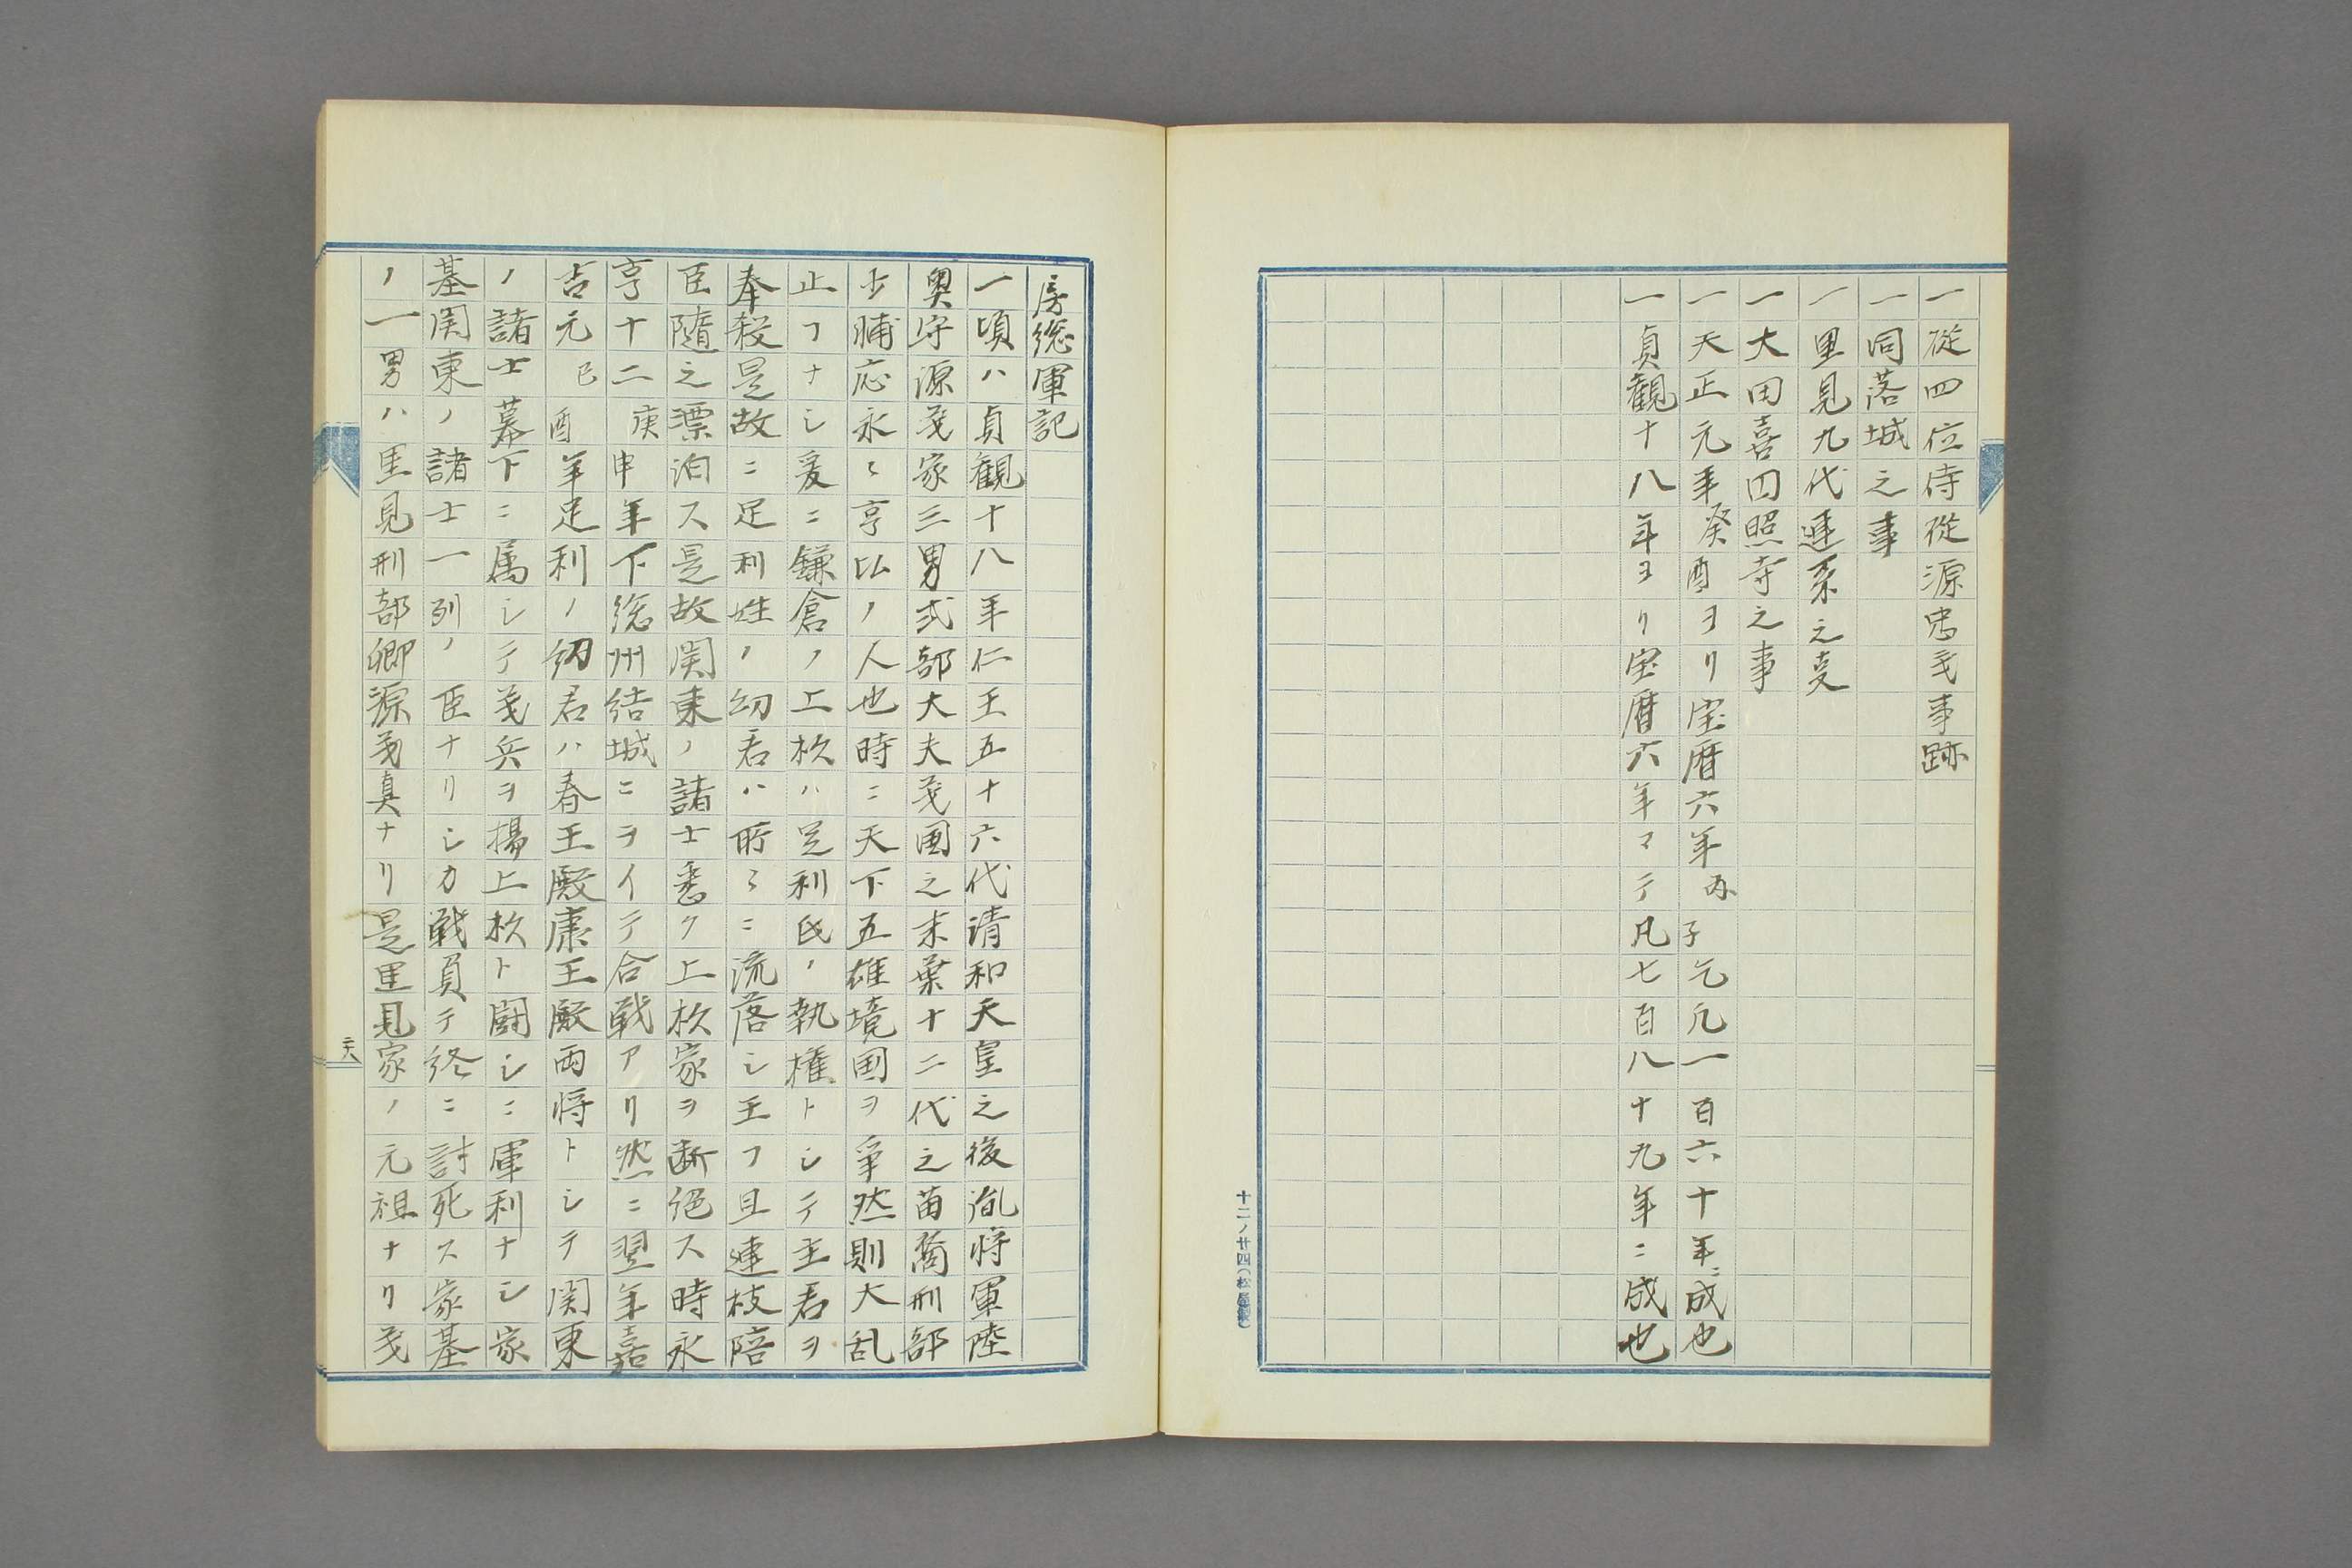 一從四位侍從源忠義事跡
一同落城之事
一里見九代連系之支
一大田喜四照寺之事
一天正元年癸酉ヨリ宝暦六年丙子迄凡一百六十年ニ成也
一貞観十八年ヨリ宝暦六年マテ凡七百八十九年ニ成也
十二ノ廿四(松屋製)
房総軍記
一頃ハ貞観十八年仁王五十六代清和天皇之後胤将軍陸
奥守源義家三男式部大夫義国之末葉十二代之苗裔刑部
少輔応永々亨比ノ人也時ニ天下五雄境国ヲ爭然則大乱
止フナシ爰ニ鎌倉ノ上杦ハ足利氏ノ執権トシテ主君ヲ
奉殺是故ニ足利姓ノ幼君ハ所々ニ流落シ玉フ且連枝陪
臣隨之漂泊ス是故関東ノ諸士悉ク上杦家ヲ断絶ス時永
亨十二庚申年下総州結城ニヲイテ合戦アリ然ニ翌年嘉
吉元巳酉年足利ノ幼君ハ春王殿康王殿両将トシテ関東
ノ諸士幕下ニ属シテ義兵ヲ揚上杦ト闘シニ軍利ナシ家
基関東ノ諸士一列ノ臣ナリシカ戦負テ終ニ討死ス家基
ノ一男ハ里見刑部卿源義真ナリ是里見家ノ元祖ナリ義
二六